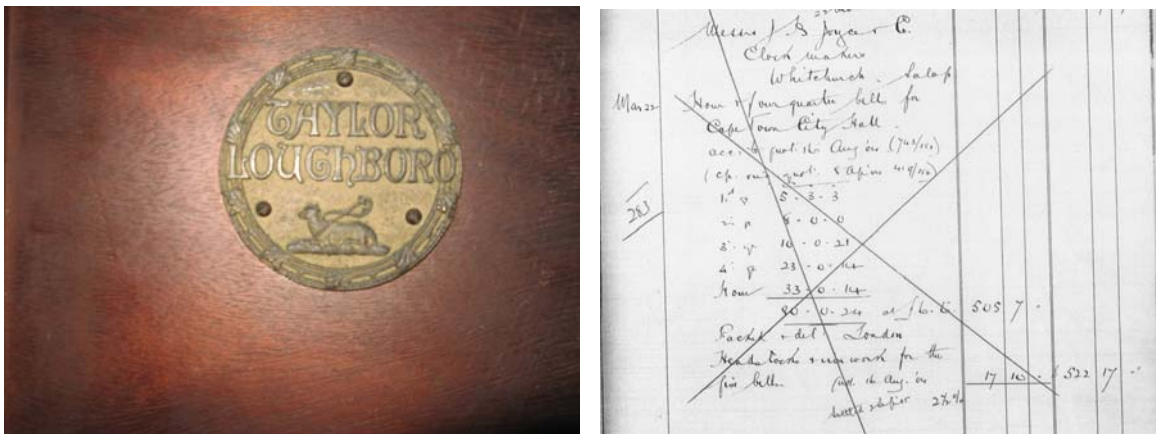 TAYLOR
LOUGHBORO
Messrs J. B. Joyce & C.
Clock makers
Whitchurch. Salop
Mar 22 Hour & four quarter bells for
Cape Town City Hall.
quot. 16 Aug
quot. 8 Apr
283
1st q 5 - 3 - 3
2 q 8 - 0 - 0
3 q 10 - 0 - 21
4 q 23 - 0 - 14
Hour 33 - 0 - 14
80 - 0 - 24 at 505 7 -
Packed & del London
Headstocks & ironwork for the
five bells 16 Aug. 17 10 - 522 17 -
2½%